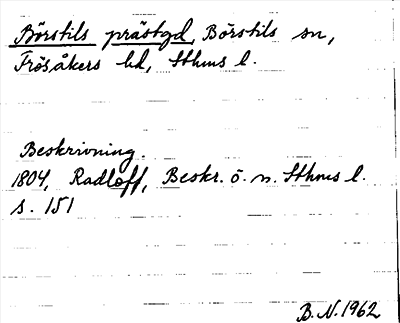 Börstils prästgd, Börstils sn,
Frösåkers hd, Sthms l.
Beskrivning.
1804, Radloff, Beskr. ö. n. Sthms l.
s. 151
B. N. 1962